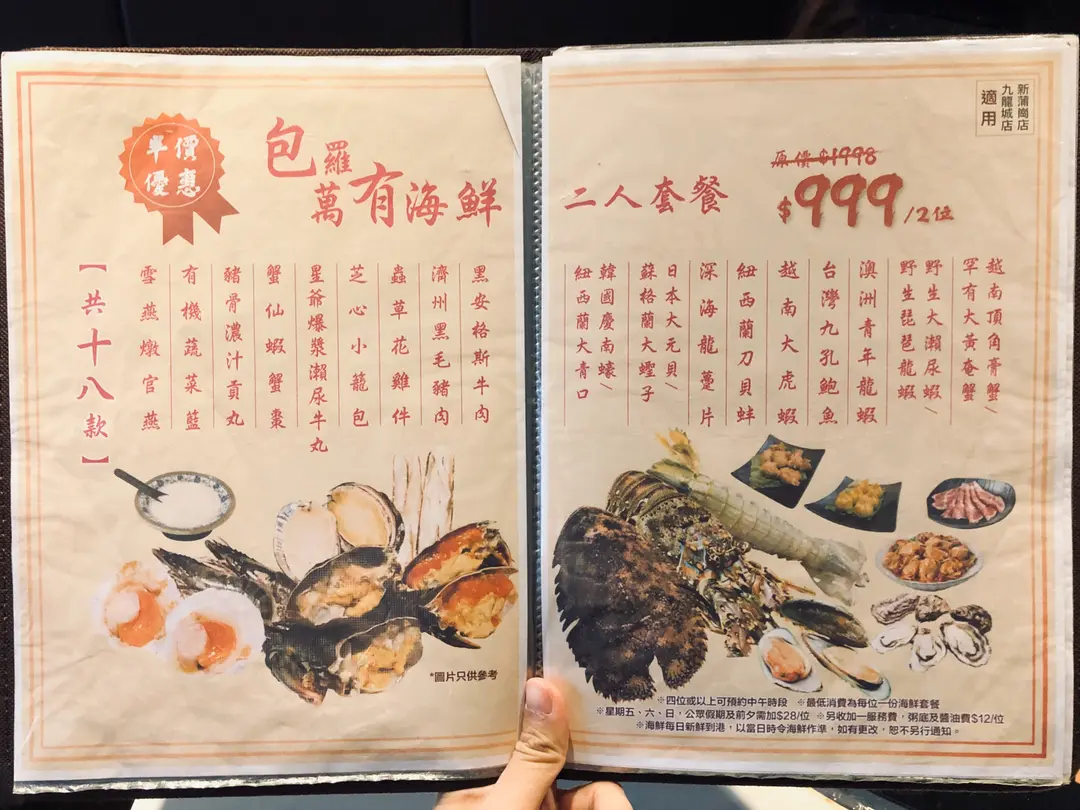 半價
優惠
包羅
萬有海鮮
【共十八款】
黑安格斯牛肉
濟州黑毛豬肉
蟲草花雞件
芝心小籠包
星爺爆漿瀨尿牛丸
蟹仙蝦蟹棗
豬骨濃汁貢丸
有機蔬菜籃
雪燕燉官燕
*圖片只供參考
新蒲崗店
九龍城店
適用
二人套餐
原價$1998
$999/2位
越南頂角膏蟹/
罕有大黃奄蟹
野生大瀨尿蝦/
野生琵琶龍蝦
澳洲青年龍蝦
台灣九孔鮑魚
越南大虎蝦
紐西蘭刀貝蚌
深海龍躉片
日本大元貝/
蘇格蘭大蟶子
韓國慶南蠔/
紐西蘭大青口
※四位或以上可預約中午時段 ※最低消費為每位一份海鮮套餐
※星期五、六、日，公眾假期及前夕需加$28/位 ※另收加一服務費，粥底及醬油費$12/位
※海鮮每日新鮮到港，以當日時令海鮮作準，如有更改，恕不另行通知。